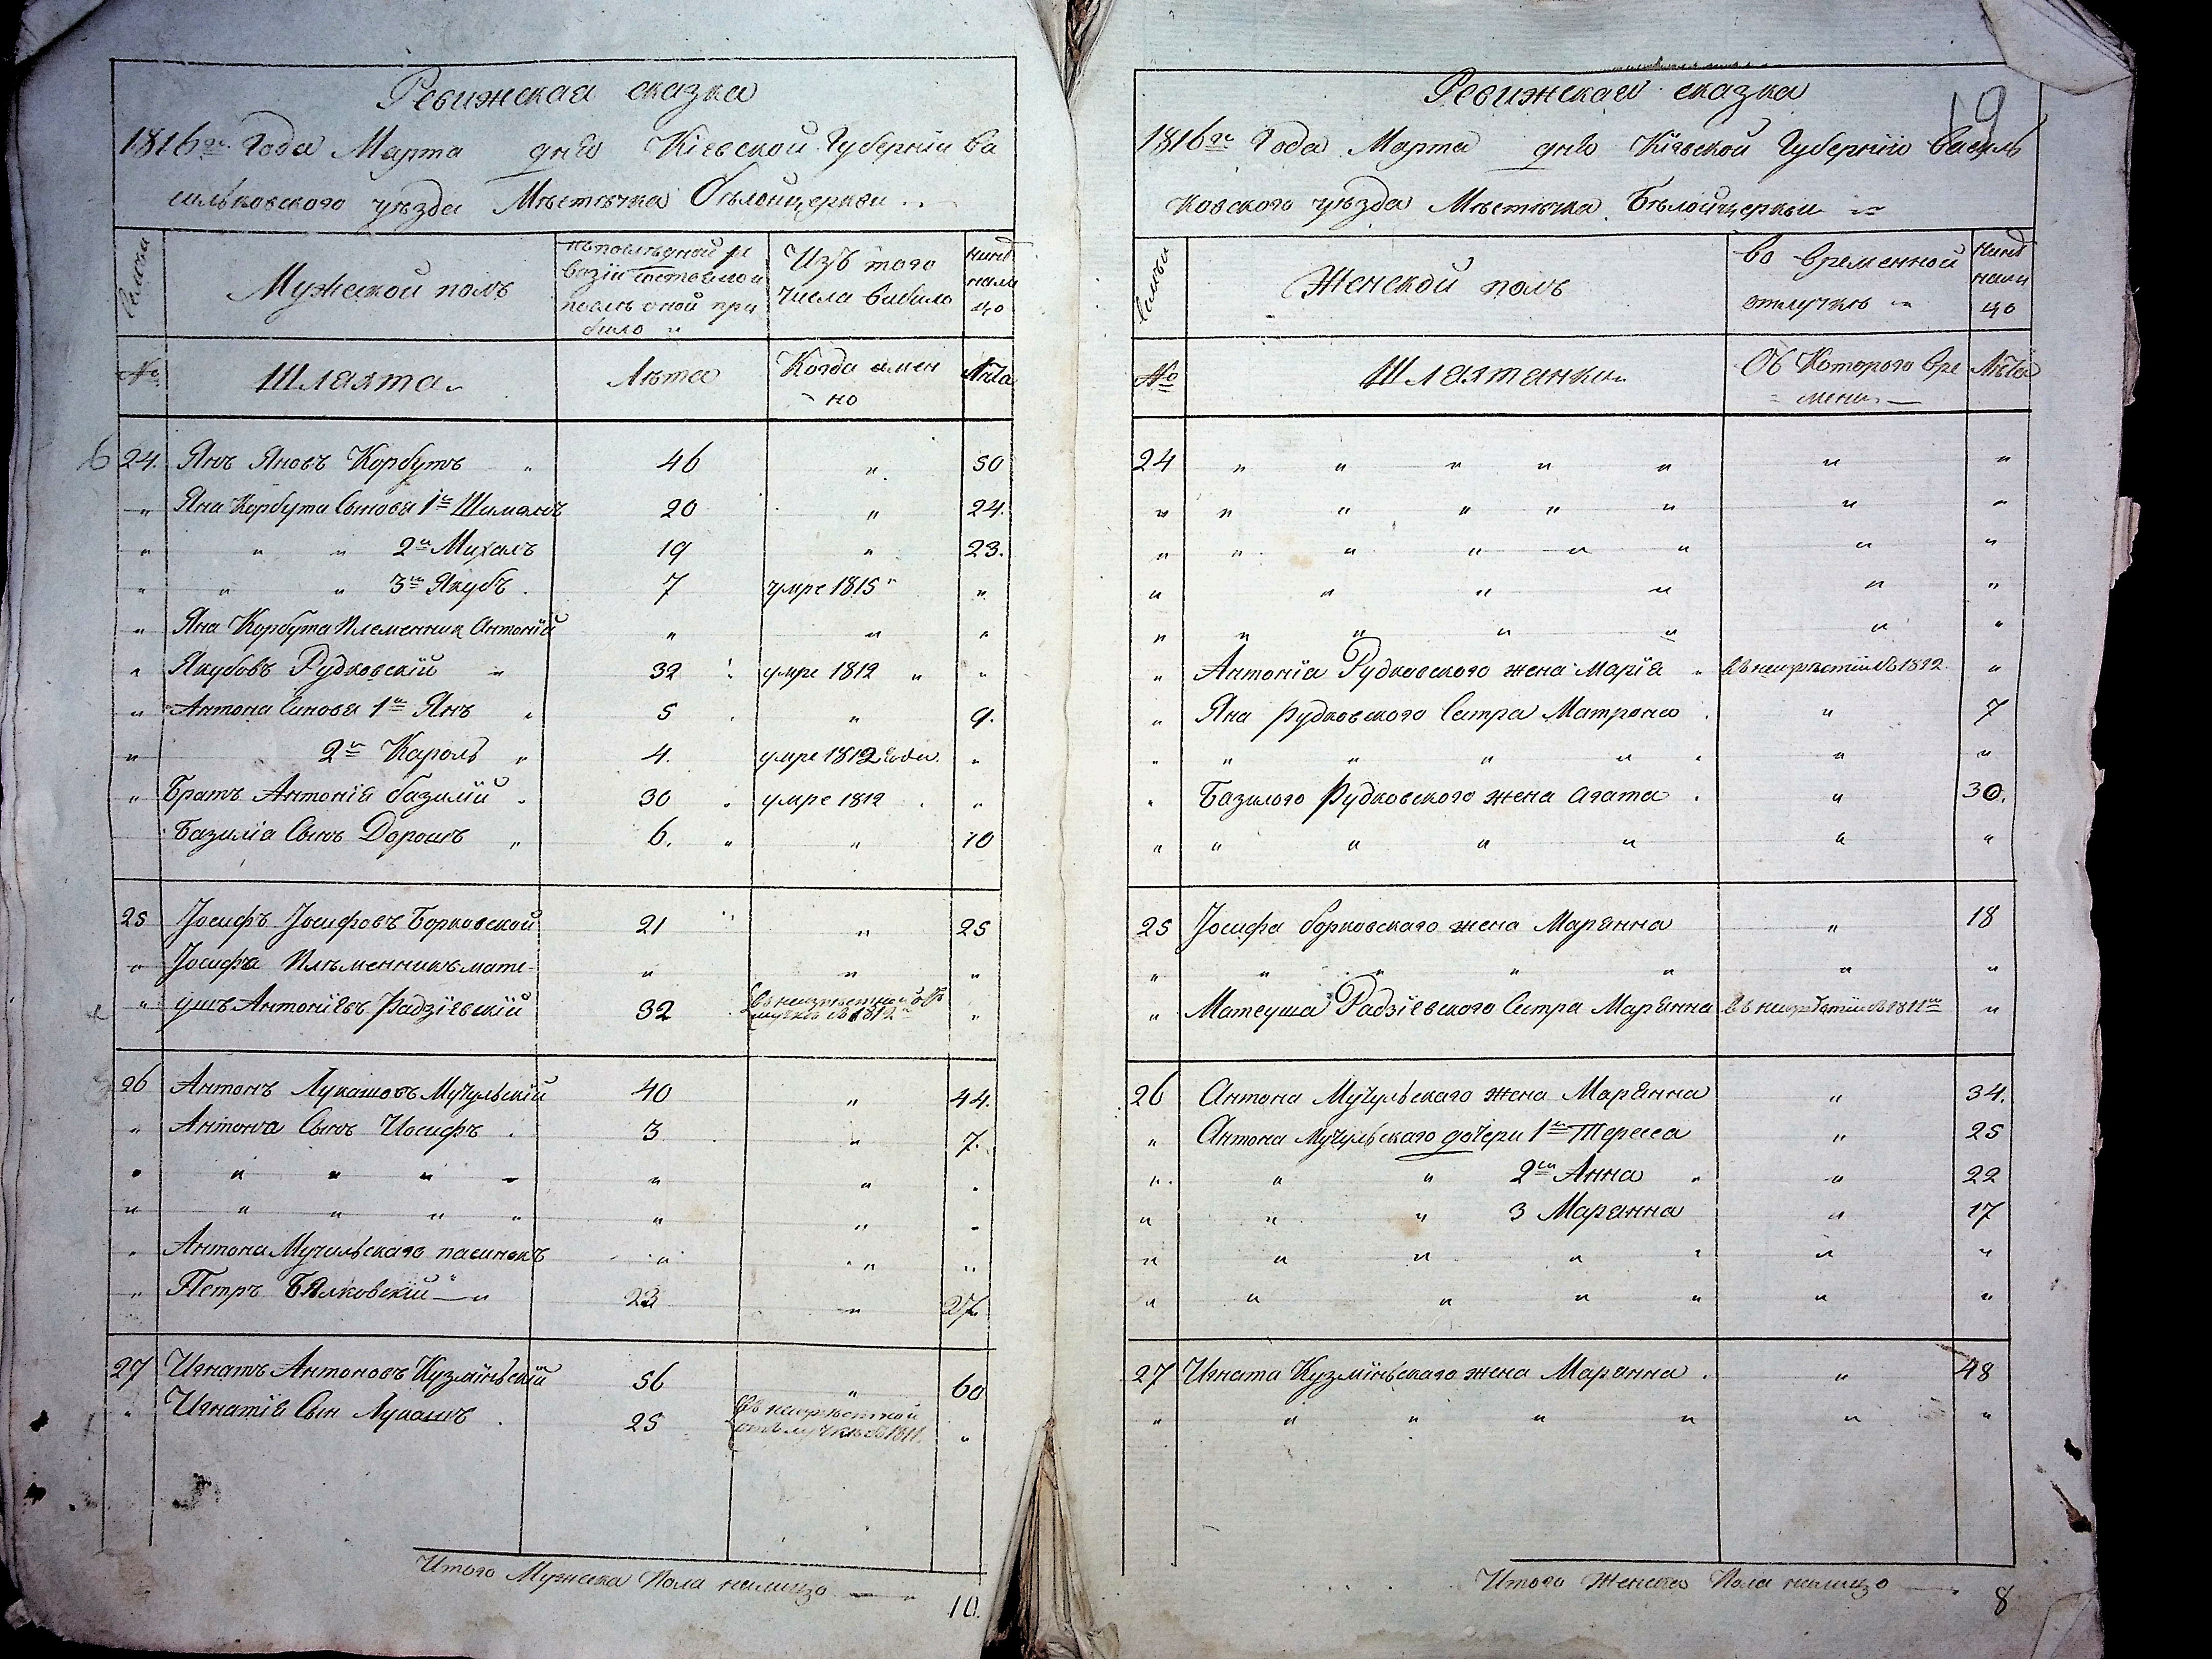 Ревижская сказка
1816го Года Марта дня Кіевской Губерніи Ва
сильковского уѣзда Мѣстечка Бѣлойцеркви
Семья
Мужеской полъ
Изъ того
числа выбыло
№
Шляхта
Лѣта
Когда имен
но
Лѣта
24. Янъ Яновъ Корбутъ " 46 " 50
" Яна Корбута Сыновья 1й Шимонъ 20 " 24.
" " " 2й Михалъ 19 " 23.
" " " 3й Якубъ 7 умре 1815 "
" Яна Корбута Племенник Антоній " " "
" Якубовъ Рудковскій " 32 умре 1812 " "
" Антона Синовья 1й Янъ " 5 " 9.
" 2й Кароль " 4. умре 1812 года "
" Братъ Антонія Базилій 30 умре 1812 "
Базилія Сынъ Дорошъ " 6. " " 10
25 Јосифъ Јосифовъ Борковской 21 " 25
" Јосифа Племенникъ мате- " " "
" ушъ Антоніевъ Радзіевскій 32 "
26 Антонъ Лукашовъ Мучульскій 40 " 44.
" Антона Сынъ Иосифъ 3 " 7.
" " " " " " " "
" " " " " " " "
" Антона Мучульскаго пасинокъ " " "
" Петръ Бялковскій " 23 " 27.
27 Игнатъ Антоновъ Кузміньскій 56 " 60
" Игнатія Сын Лукашъ 25 Въ неизвѣстной
отълучкѣ съ 1811. "
Итого Мужеска Пола налицо 10.
19
Ревижская сказка
1816го Года Марта дня Кіевской Губерніи Василь
ковского уѣзда Мѣстечка Бѣлойцеркви
Семья
Женской полъ
во временной
отлучкѣ
нинѣ
нали
цо
№
Шляхтанки
Съ Которого вре
мени
Лѣта
24 " " " " " " "
" " " " " " " "
" " " " " " " "
" " " " " "
" " " " " " "
" Антонія Рудковского жена Марія " въ неизвѣстіи съ 1812. "
" Яна Рудковского Сестра Матрона " 7
" " " " " " "
" Базилого Рудковского жена Агата " 30.
" " " " " " "
25 Јосифа Борковскаго жена Маріанна " 18
" " " " " " "
" Матеуша Радзіевского Сестра Маріанна въ неизвѣстіи съ 1811го "
26 Антона Мучульскаго жена Маріанна " 34.
" Антона Мучульскаго дочери 1я Тереса " 25
" " " 2я Анна " " 22
" " " 3 Маріанна " 17
" " " " " " "
" " " " " " "
27 Игната Кузміньскаго жена Маріанна " 48
" " " " " " "
Итого Женска Пола налицо 8